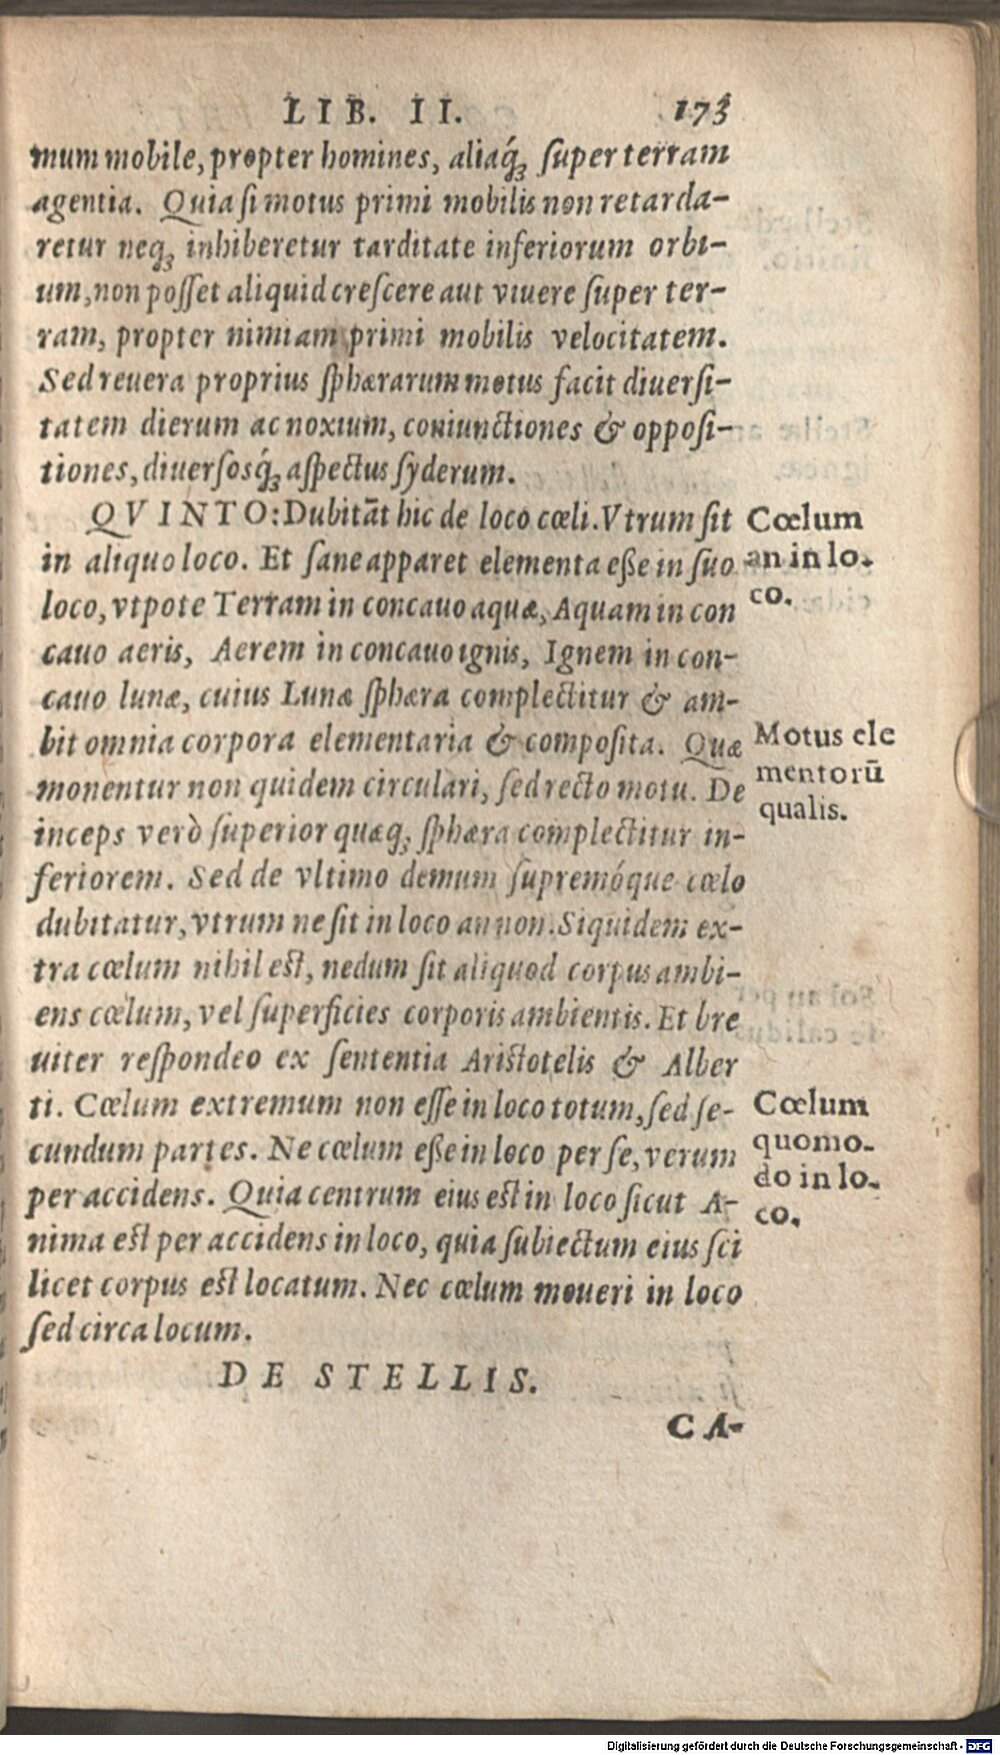 LIB. II. 173
mum mobile, propter homines, aliaq́ꝫ super terram
agentia. Quia si motus primi mobilis non retarda-
retur neqꝫ inhiberetur tarditate inferiorum orbi-
um, non posset aliquid crescere aut viuere super ter-
ram, propter nimiam primi mobilis velocitatem.
Sed reuera proprius sphærarum motus facit diuersi-
tatem dierum ac noxium, coniunctiones & opposi-
tiones, diuersosq́ꝫ aspectus syderum.
QVINTO: Dubitāt hic de loco cœli. Vtrum sit
in aliquo loco. Et sane apparet elementa eße in suo
loco, vtpote Terram in concauo aquæ, Aquam in con
cauo aeris, Aerem in concauo ignis, Ignem in con-
cauo lunæ, cuius Lunæ sphæra complectitur & am-
bit omnia corpora elementaria & composita. Quæ
monentur non quidem circulari, sed recto motu. De
inceps verò superior quæqꝫ sphæra complectitur in-
feriorem. Sed de vltimo demum supremóque cœlo
dubitatur, vtrum ne sit in loco an non. Siquidem ex-
tra cœlum nihil est, nedum sit aliquod corpus ambi-
ens cœlum, vel superficies corporis ambientis. Et bre
uiter respondeo ex sententia Aristotelis & Alber
ti. Cœlum extremum non esse in loco totum, sed se-
cundum partes. Ne cœlum eße in loco per se, verum
per accidens. Quia centrum eius est in loco sicut A-
nima est per accidens in loco, quia subiectum eius sci
licet corpus est locatum. Nec cœlum moueri in loco
sed circa locum.
DE STELLIS.
CA-
Cœlum
an in lo-
co.
Motus ele
mentorū
qualis.
Cœlum
quomo-
do in lo-
co.
Digitalisierung gefördert durch die Deutsche Forschungsgemeinschaft - DFG